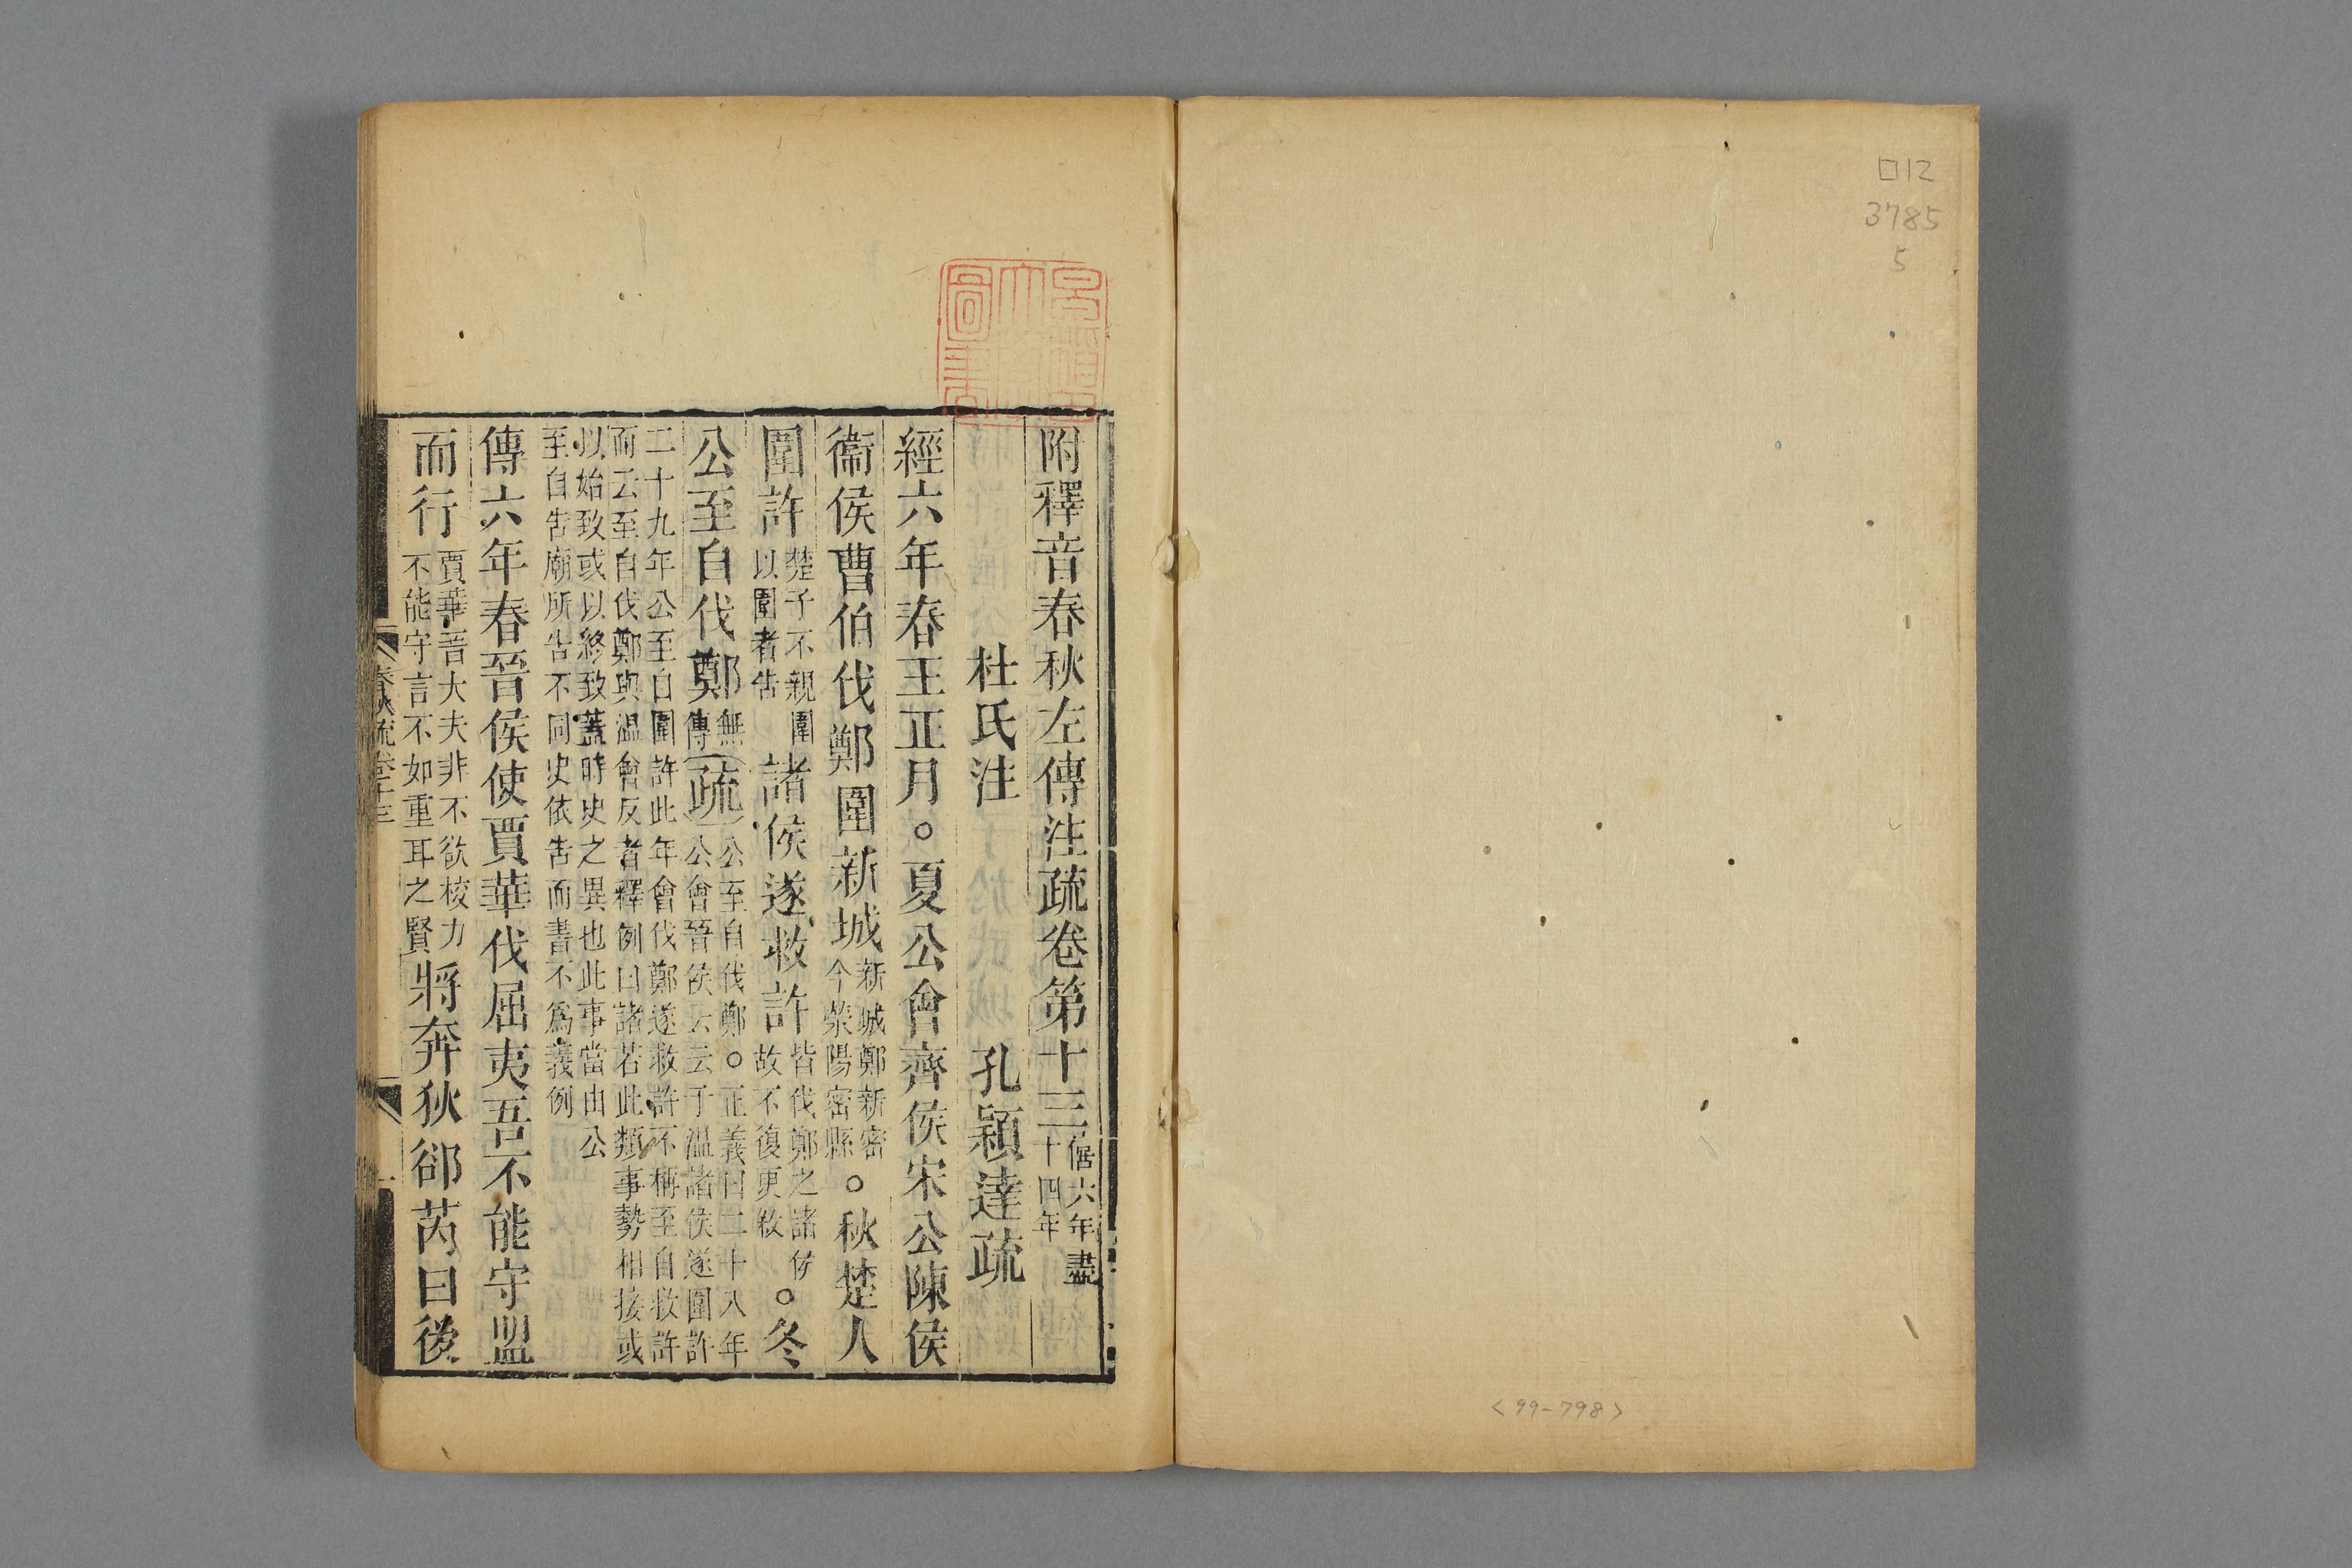 口12
3785
5
<99-798>
附釋音春秋左傳注疏卷第十三僖六年盡十四年
杜氏注 孔穎達疏
經六年春王正月。夏公會齊侯宋公陳侯
衞侯曹伯伐鄭圍新城新城鄭新密今滎陽密縣。秋楚人
圍許楚子不親圍以圍者告諸侯遂救許皆伐鄭之諸侯故不復更救。冬
公至自伐鄭無傳疏公至自伐鄭。正義曰二十八年公會晉侯云云于溫諸侯遂圍許
二十九年公至自圍許此年會伐鄭遂救許不稱至自救許
而云至自伐鄭與溫會反者釋例曰諸若此類事勢相接或
以始致或以終致蓋時史之異也此事當由公
至自告廟所告不同史依告而書不爲義例
傳六年春晉侯使賈華伐屈夷吾不能守盟
而行賈華晉大夫非不欲校力不能守言不如重耳之賢將奔狄郤芮曰後
春秋疏卷十三
一